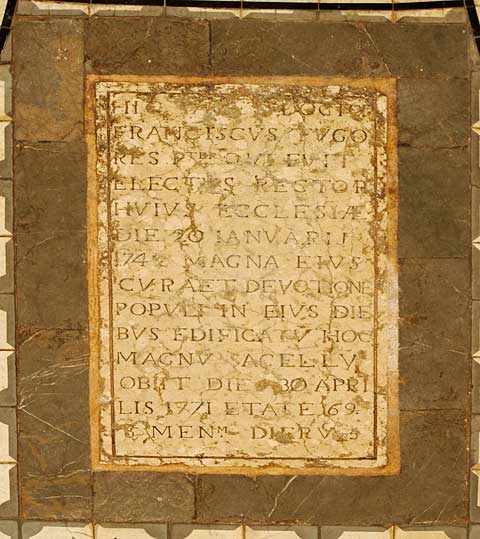 FRANCISCVS PUGO
RES PTER QUI FUIT
ELECTVS RECTOR
HVIVS ECCLESIÆ
DIE 20 IANVARII
MAGNA EIVS
CVRA ET DEVOTIONE
POPULI IN EIVS DIE
BVS EDIFICATU HOC
MAGNU SACELLU
OBIIT DIE 30 APRI
LIS 1771 ETATE 69
MEN DIERV